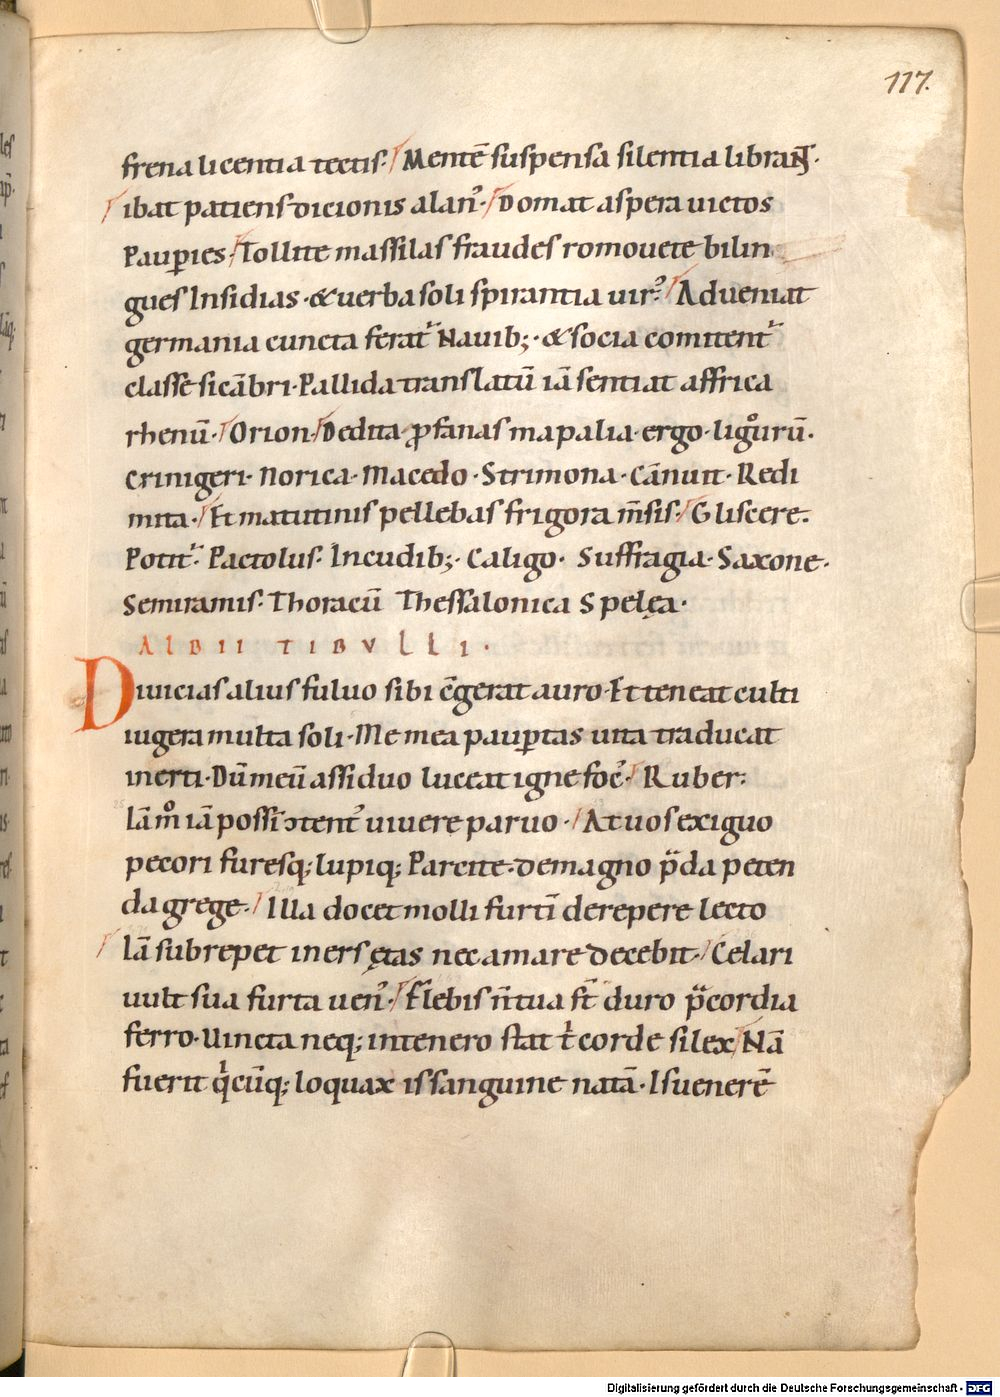 117.
frena licentia tectis· Mentē suspensa silentia librans·
ibat patiens dicionis alan᾿· Domat aspera uictos
Paup̄ies· Tollite massilas fraudes romouete bilin
gues Insidias· & uerba soli spirantia uir᾿· Adueniat
germania cuncta ferat᷑ Nauib;· & socia comitent᷑
classe sicābri· Pallida translatū iā sentiat affrica
rhenū· Orion· Dedita ꝓfanas mapalia· ergo· ligͦurū·
Crinigeri· Norica· Macedo· Strimona· Cānutt· Redi
mita· Et matutinis pellebas frigora m̄sis· Gliscere·
Potit᷑· Pactolus· Incudib;· Caligo· Suffragia· Saxone·
Semiramis· Thoracū Thessalonica Spelęa·
ALBII TIBVLLI·
Diuicias alius fuluo sibi c̄gerat auro· Et teneat culti
iugera multa soli· Me mea paup̄tas uita traducat
inerti· Dū meū assiduo luceat igne foc᾿· Ruber:
Iā mͦ iā possī ↄtent᾿ uiuere paruo· At uos exiguo
pecori furesq; lupiq; Parcite· de magno p̄da peten
da grege· Illa docet molli furtī derepere lecto
Iā subrepet iners ętas nec amare decebit· Celari
uult sua furta uen᾿· Flebis n̄ tua st̄ duro p̄cordia
ferro· Uincta neq; in tenero stat tⁱ corde silex Nā
fuerit qⁱcūq; loquax is sanguine natā· Is uenerē
Digitalisierung gefördert durch die Deutsche Forschungsgemeinschaft - DFG